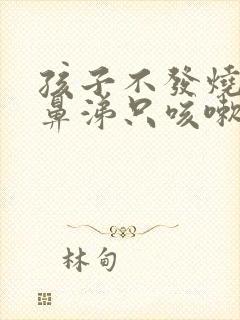 孩子不發燒
鼻涕只咳嗽
林甸